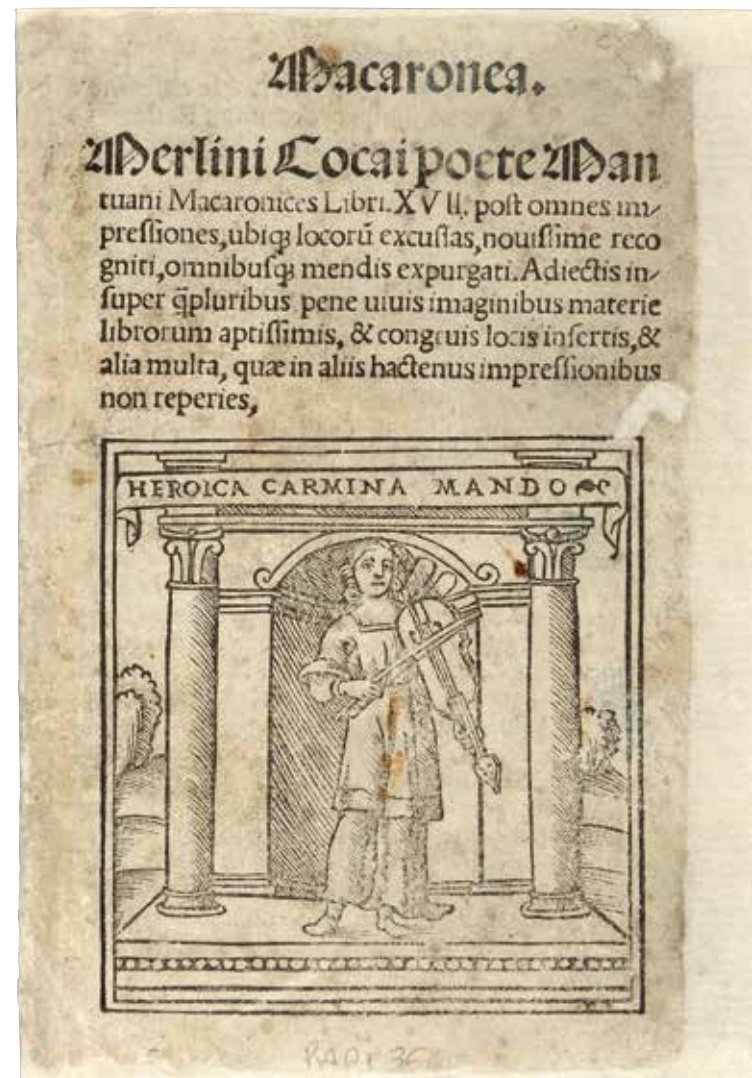 Macaronea.
Merlini Cocai poete Man
tuani Macaronices Libri. XVII. post omnes im-
pressiones, ubiqꝫ locorũ excussas, nouissime reco
gniti, omnibusqꝫ mendis expurgati. Adiectis in-
super q̃pluribus pene uiuis imaginibus materie
librorum aptissimis, & congruis locis insertis, &
alia multa, quæ in aliis hactenus impressionibus
non reperies,
HEROICA CARMINA MANDO